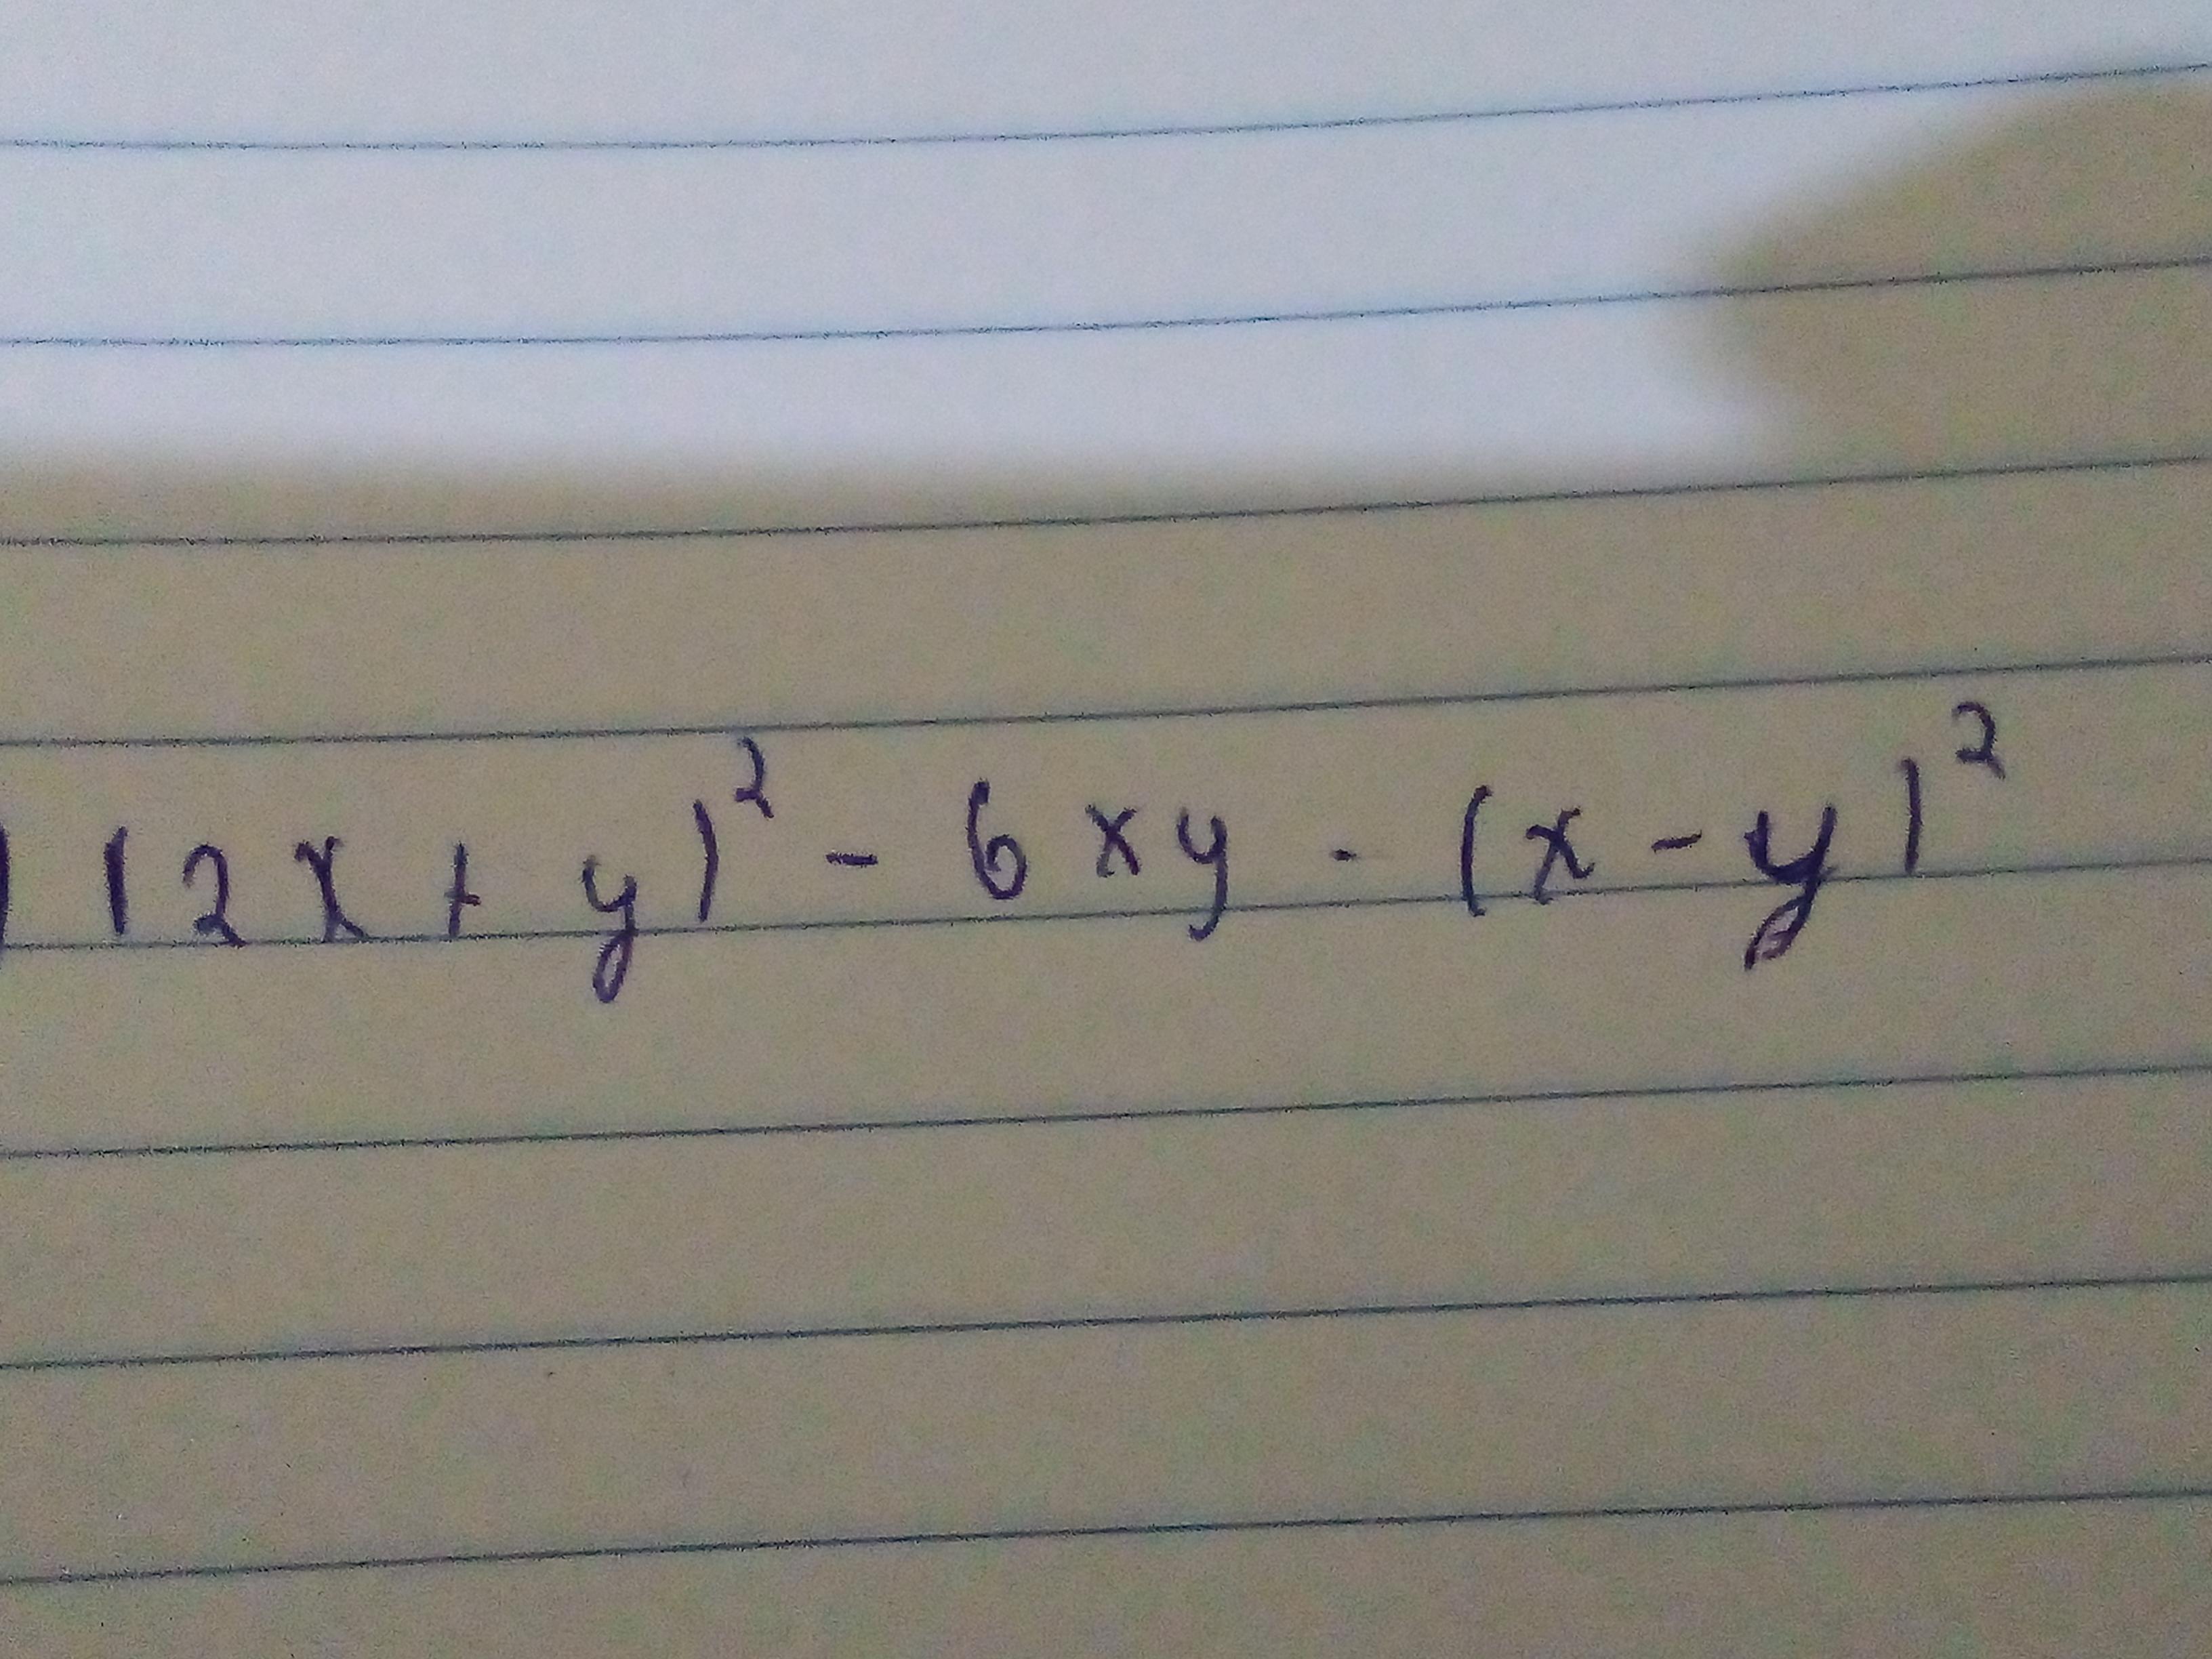 ) (2x + y)² - 6xy - (x - y)²